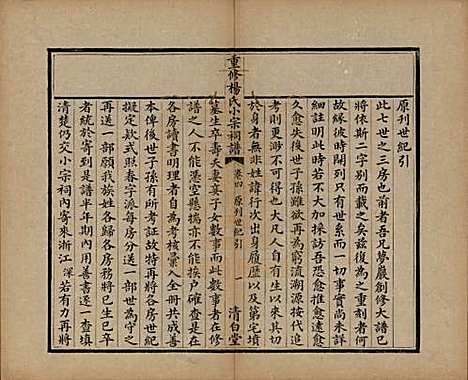 原刊世紀引
此七世之三房也前者吾兄夢巖創修大譜已
將依斯二字別引而載之矣茲復為之重刻者何
故緣彼時開列只在加採訪一切事實尚未詳
細註明若不加採訪吾恐愈推遠愈
久愈失後世子孫雖欲再為窮流溯源按代追
考則更渺不可得也大凡人自有其切
於身者無非姓諱行次出身履歷以及第宅墳
重修楊氏小宗祠譜
卷四 原刊世紀引
一
清白堂
墓生卒壽夭妻妾子女數事而此數事者在修
譜之人不能憑空懸擬亦不能挨戶確查是在
各房讀書明理者自為考核彙入全冊共成善
本俾後世子孫有所考證故特再將各房世紀
擬定款式照春字派每房分送一部世為守之
再送一部願我族人各歸各房將已生已卒
者統於是譜半年期內用善書逐一查填
清楚仍交小宗祠內寄來浙江渾若有力再將